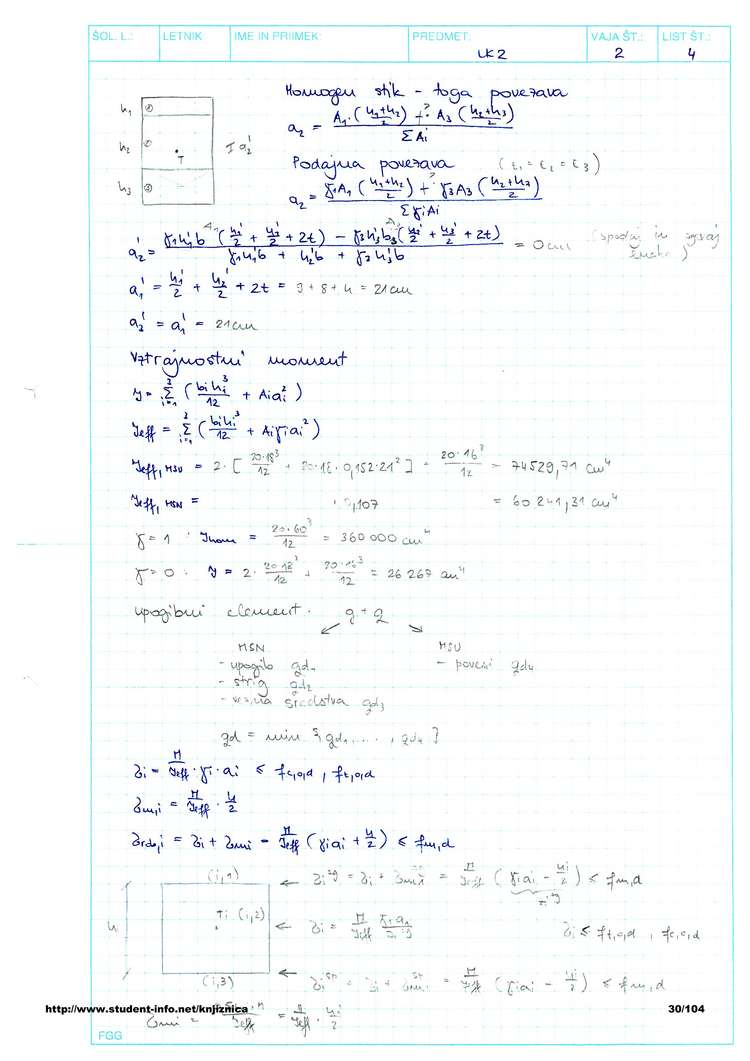 ŠOL. L.: LETNIK IME IN PRIIMEK: PREDMET: VAJA ŠT.: LIST ŠT.:
LK2 2 4
Homogen stik - toga povezava
h₁ ①
a₂ = A₁·((h₁+h₂)/2) +? A₃((h₂+h₃)/2) / ΣAi
h₂ ② T I a₂'
h₃ ③
Podajna povezava (t₁ = t₂ = t₃)
a₂ = γ₁A₁((h₁+h₂)/2) +? γ₃A₃((h₂+h₃)/2) / ΣγiAi
a₂' = γ₁h₁'b(h₁'/2 + h₂'/2 + 2t) - γ₃h₃'b₃(h₂'/2 + h₃'/2 + 2t) / γ₁h₁'b + h₂'b + γ₃h₃'b = 0 cm (spodaj in zgoraj enako)
a₁' = h₁'/2 + h₂'/2 + 2t = 9 + 8 + 4 = 21 cm
a₃' = a₁' = 21 cm
Vztrajnostni moment
J = Σ(i=1..3) (bihi³/12 + Aiai²)
Jeff = Σ(i=1..3) (bihi³/12 + Aiγiai²)
Jeff, MSU = 2·[20·18³/12 + 20·18·0,152·21²] + 20·16³/12 = 74529,71 cm⁴
Jeff, MSN = 0,107 = 60241,31 cm⁴
γ = 1 : Jhom = 20·60³/12 = 360 000 cm⁴
γ = 0 : J = 2·20·18³/12 + 20·16³/12 = 26 267 cm⁴
upogibni element : g + q
MSN MSU
- upogib qd₁ - povesi qd₄
- strig qd₂
- vezna sredstva qd₃
qd = min {qd₁, ...., qd₄}
σi = M/Jeff · γi · ai ≤ fc,0,d , ft,0,d
σm,i = M/Jeff · h/2
σrob,i = σi + σmi = M/Jeff (γiai + h/2) ≤ fm,d
(i,1) ← σi^zg = σi + σmi = M/Jeff (γiai - hi/2) ≤ fm,d
h Ti (i,2) ← σi = M/Jeff σi ≤ ft,0,d , fc,0,d
(i,3) ← σi^sp = σi + σmi^sp = M/Jeff (γiai - hi/2) ≤ fm,d
http://www.student-info.net/knjiznica 30/104
σmi = /Jeff = M/Jeff · hi/2
FGG